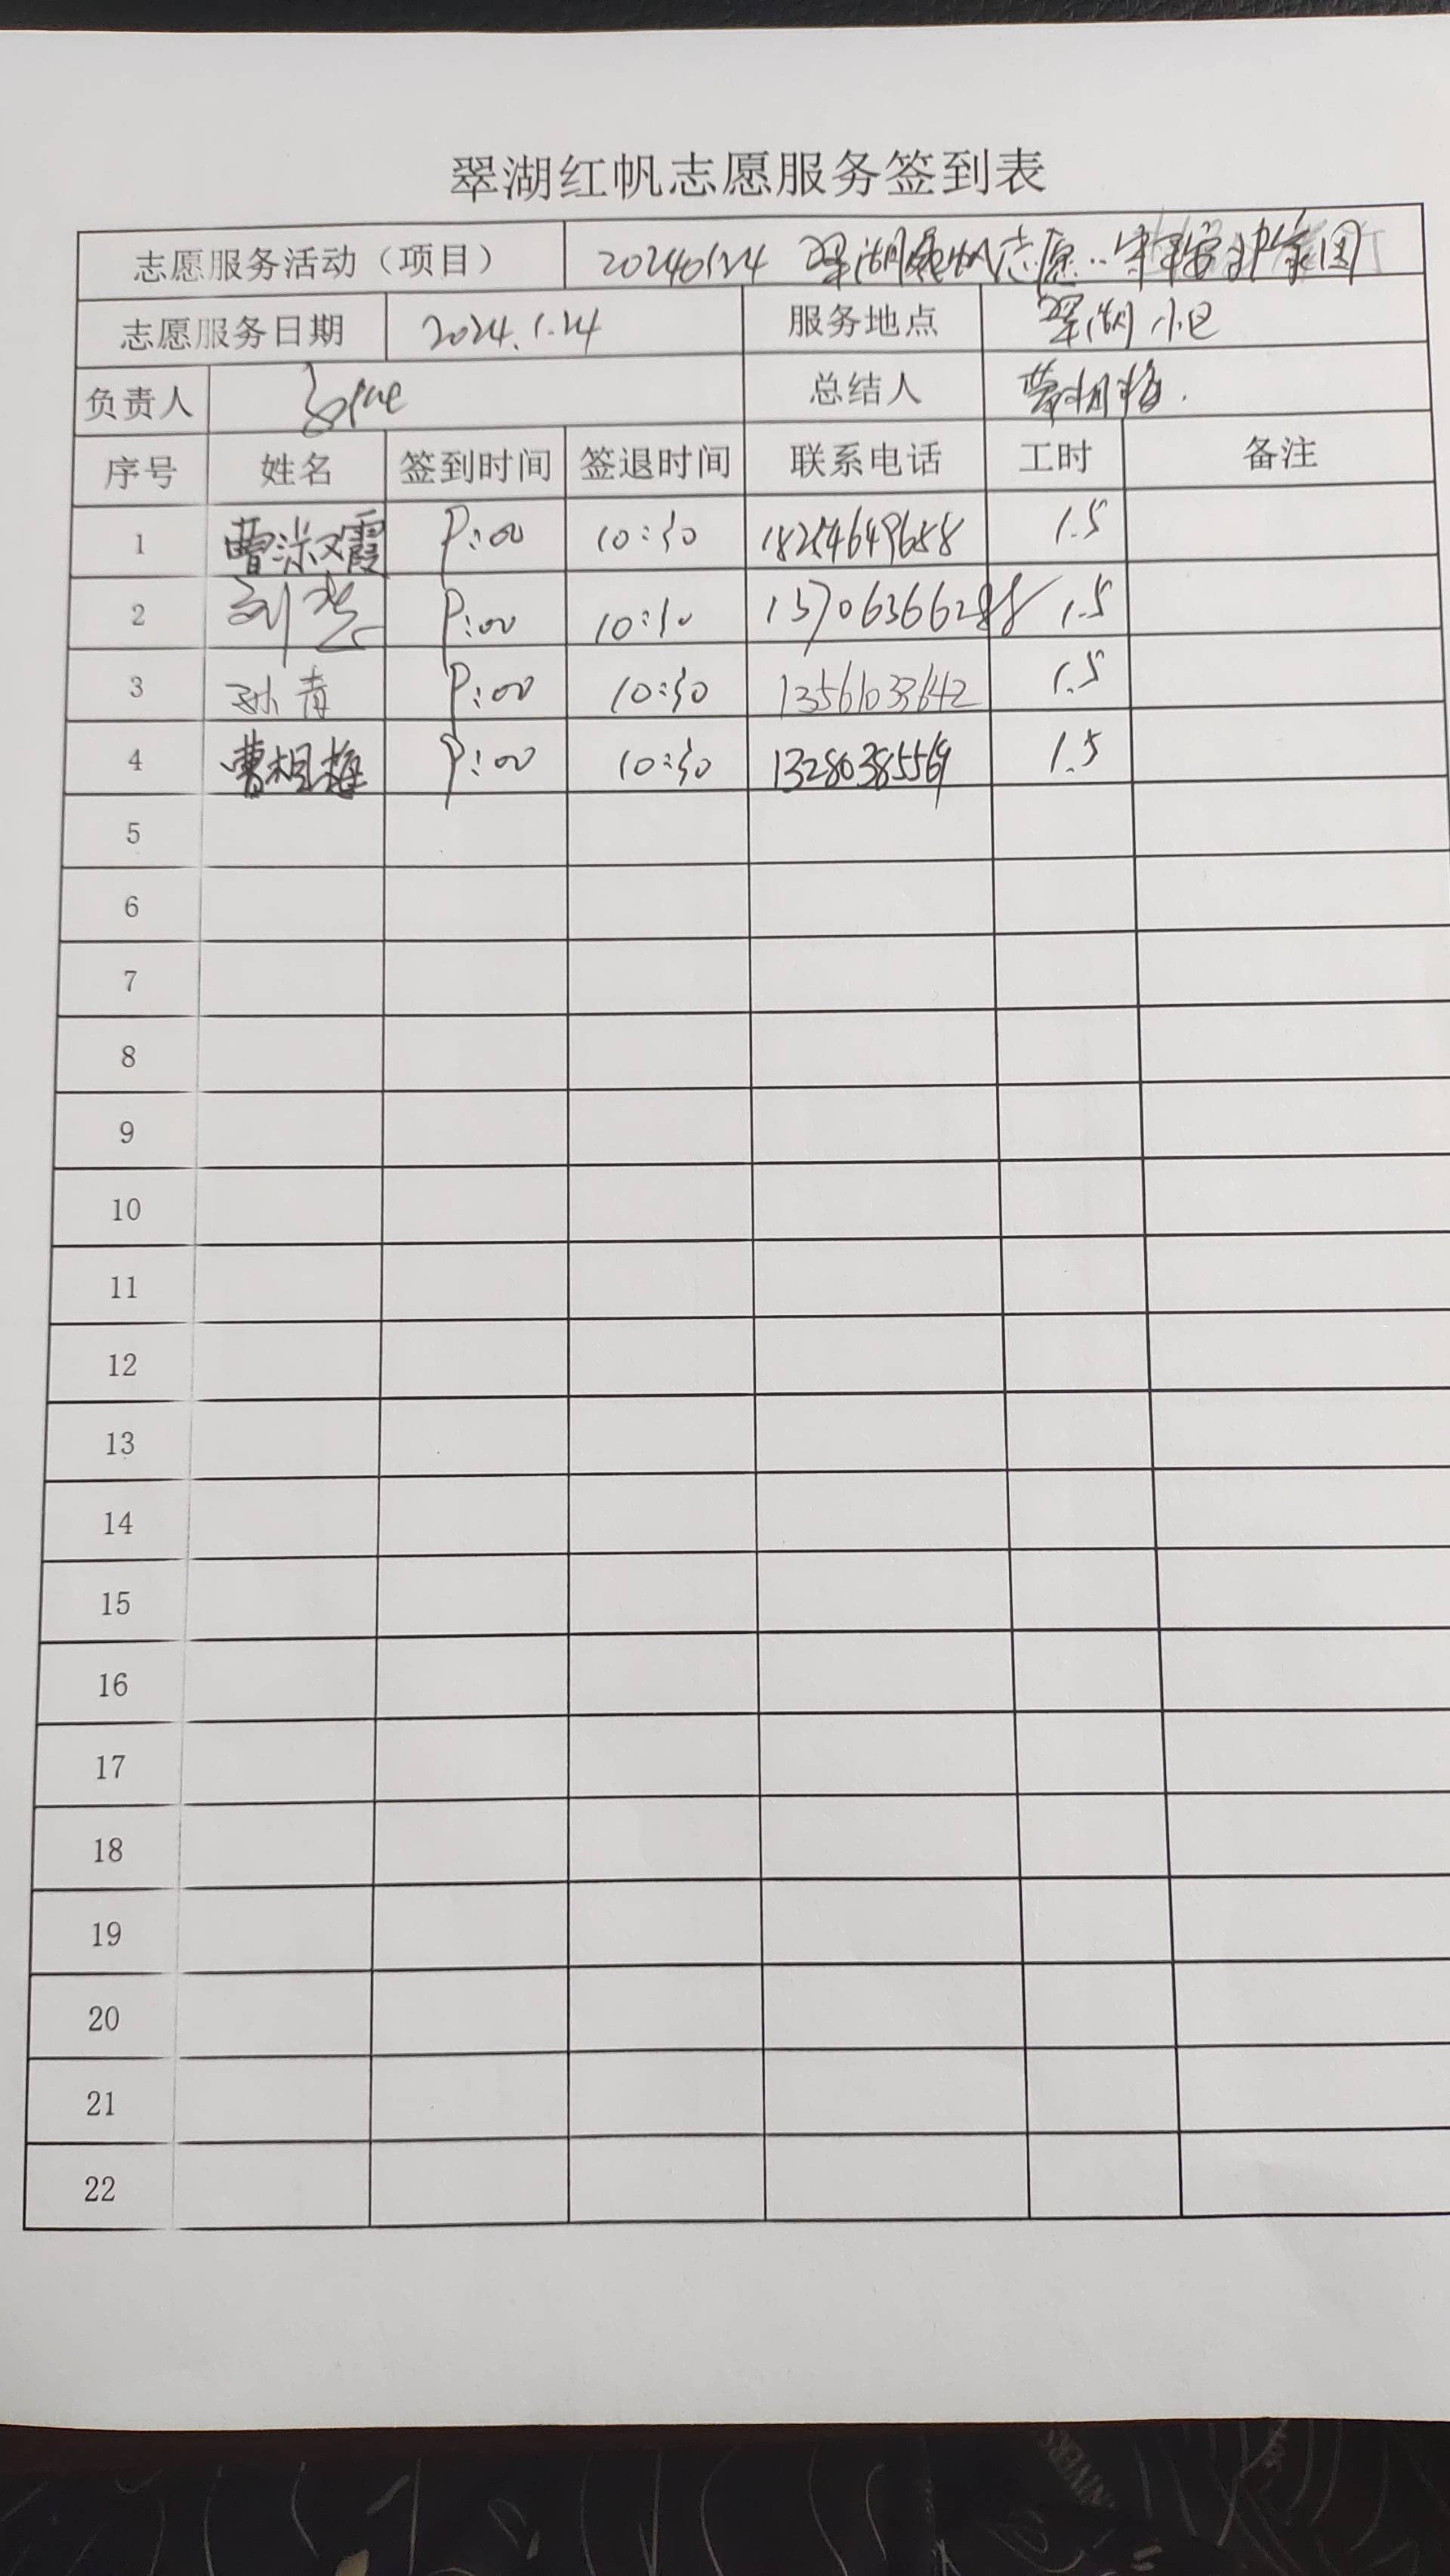 翠湖红帆志愿服务签到表
志愿服务活动（项目） 20240124 翠湖红帆志愿..守平安护家园
志愿服务日期 2024.1.24 服务地点 翠湖小区
负责人 总结人 曹相梅.
序号 姓名 签到时间 签退时间 联系电话 工时 备注
1 曹淑霞 9:00 10:30 18254649688 1.5
2 刘 9:00 10:30 13706366288 1.5
3 孙青 9:00 10:30 13561033642 1.5
4 曹相梅 9:00 10:30 13280385569 1.5
5
6
7
8
9
10
11
12
13
14
15
16
17
18
19
20
21
22